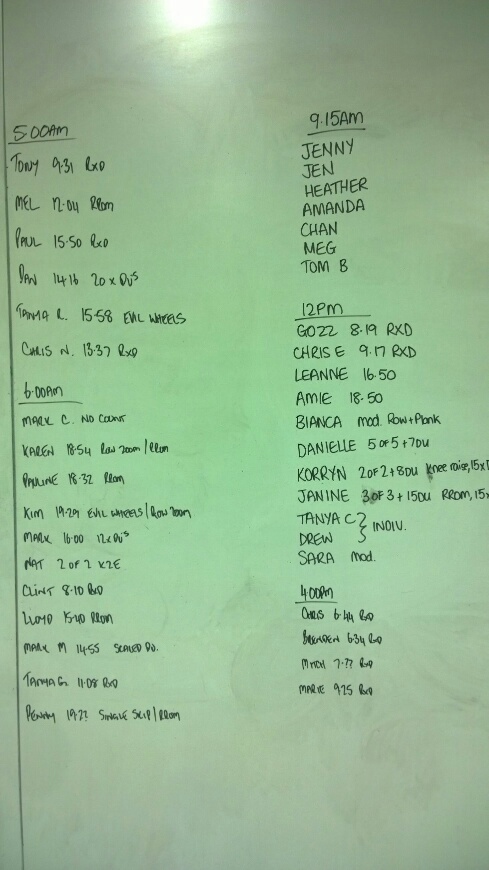 5:00AM
TONY 9.31 RXD
MEL 12.04 RROM
PAUL 15.50 RXD
DAN 14.16 20 x DU'S
TANYA R. 15.58 EVIL WHEELS
CHRIS N. 13.37 RXD
6:00AM
MARK C. NO COUNT
KAREN 18.54 ROW 200m / RROM
PAULINE 18.32 RROM
KIM 19.29 EVIL WHEELS / ROW 200m
MARK 16:00 12 x DU'S
NAT 2 OF 2 K2E
CLINT 8.10 RXD
LLOYD 15.40 RROM
MARK M 14.55 SCALED DU.
TANYA G. 11.08 RXD
PENNY 19.?? SINGLE SKIP / RROM
9.15AM
JENNY
JEN
HEATHER
AMANDA
CHAN
MEG
TOM B
12PM
GOZZ 8.19 RXD
CHRIS E 9.17 RXD
LEANNE 16.50
AMIE 18.50
BIANCA mod. Row + Plank
DANIELLE 5 OF 5 + 7DU
KORRYN 2 OF 2 + 8DU knee raise, 15x
JANINE 3 OF 3 + 15DU RROM, 15x
TANYA C } INDIV.
DREW
SARA mod.
4:00PM
CHRIS 6.44 RXD
BRENDEN 6.34 RXD
MITCH 7.?? RXD
MARIE 9.25 RXD